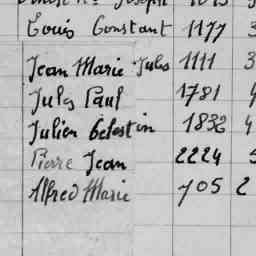 Joseph
Louis Constant 1177 3
Jean Marie Jules 1111 3
Jules Paul 1781 4
Julien Célestin 1832 4
Pierre Jean 2224 5
Alfred Marie 705 2